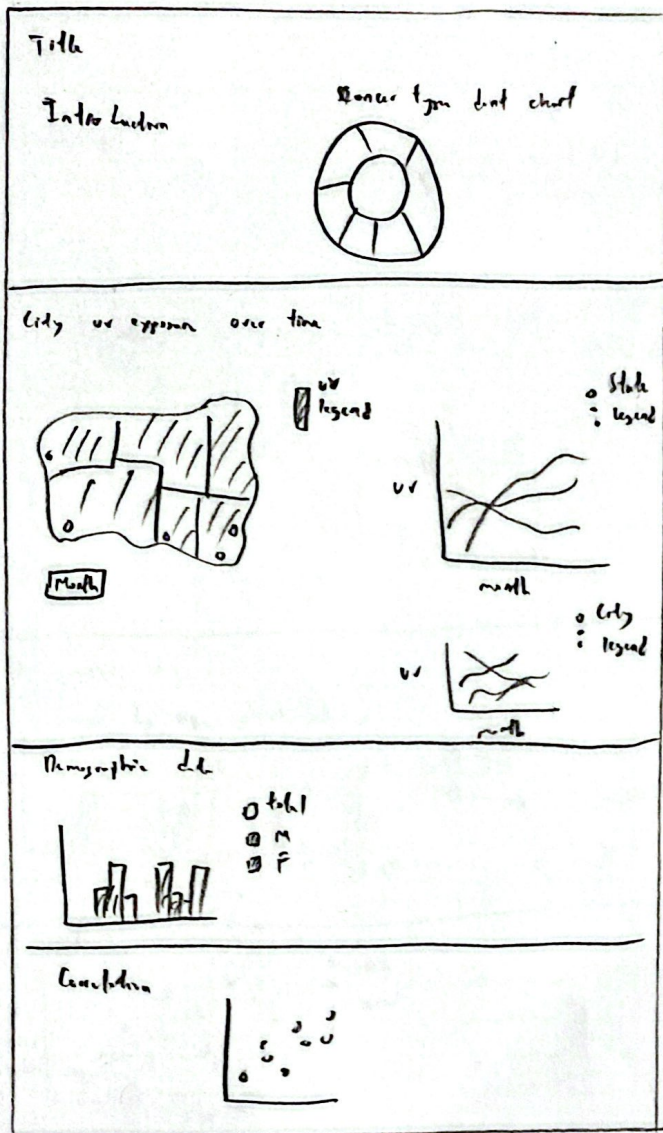 Title
Introduction
type chart
City UV exposure over time
UV
legend
State
legend
UV
month
Month
City
legend
UV
month
Demographic data
total
M
F
Correlation